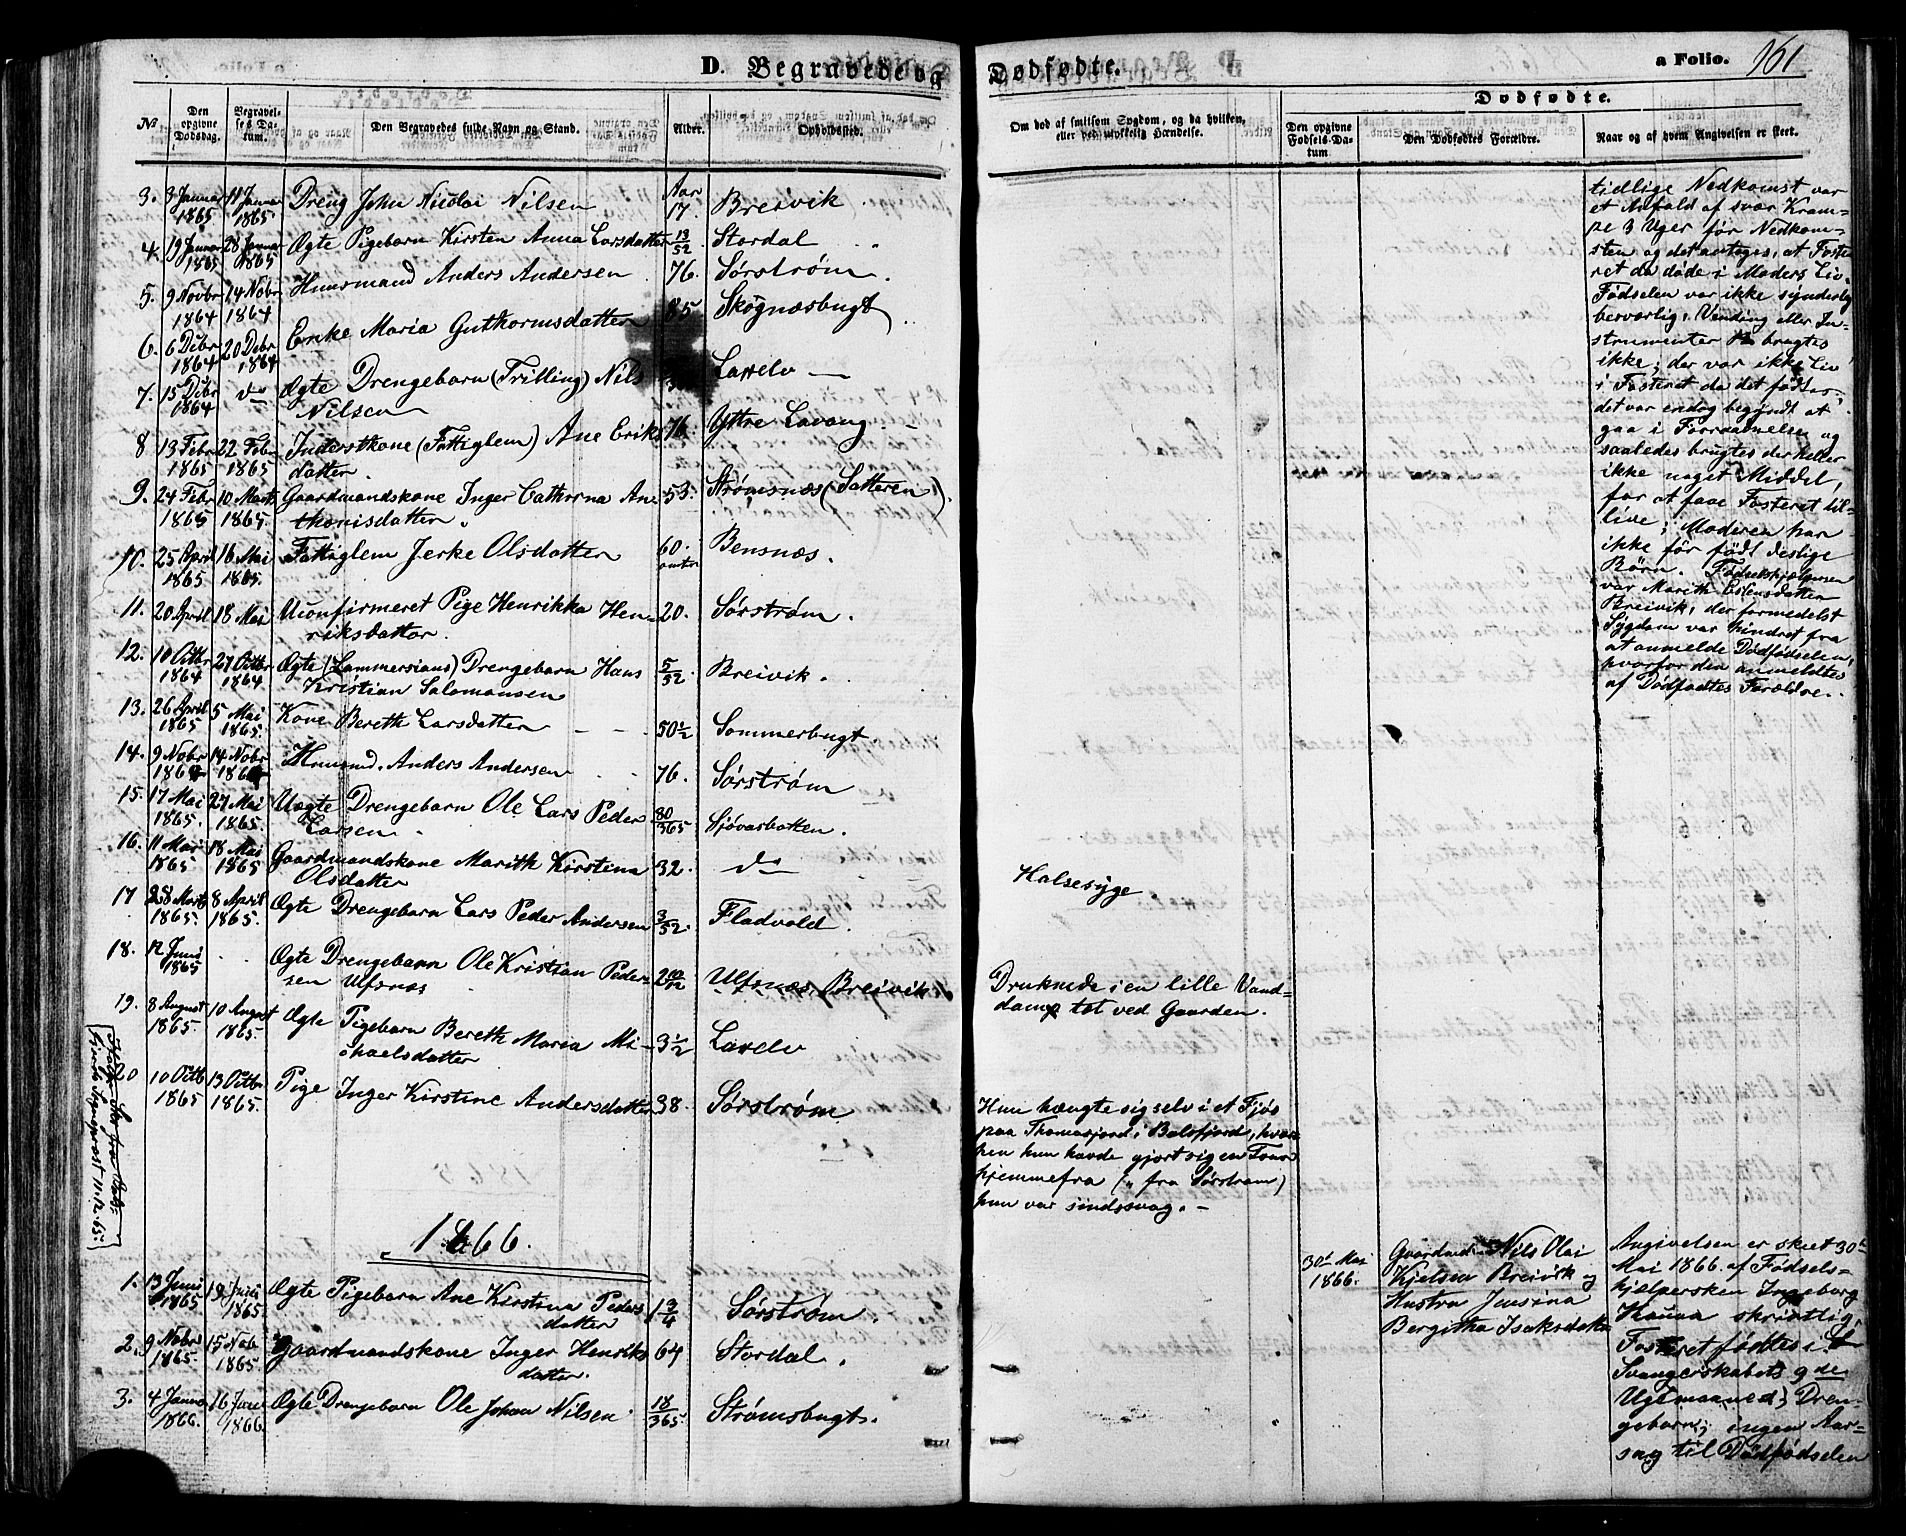 D. Begravede og Dødfødte. a Folio. 161
No
Den opgivne Dødsdag.
Begravelses Datum.
Den Begravedes fulde Navn og Stand.
Alder.
Opholdssted.
Om død af smitsom Sygdom, og da hvilken, eller ved ulykkelig Hændelse.
Dødfødte.
Den opgivne Fødsels-Datum
Den Dødfødtes Forældre.
Naar og af hvem Angivelsen er skeet.
3. 8 Januar 1865 11 Januar 1865 Dreng John Nicolai Nilsen Aar 17. Breivik
4. 19 Januar 1865 28 Januar 1865 Ægte Pigebarn Kirsten Anna Larsdatter 13/52 Stordal
5. 9 Novbr 1864 14 Nobr 1864 Huusmand Anders Andersen 76. Sørstrøm.
6. 6 Debr 1864 20 Debr 1864 Enke Maria Guthormsdatter 85 Skognæsbugt
7. 15 Debr 1864 do Ægte Drengebarn (Trilling) Nils
Nilsen Laxelv
8 13 Febr 1865 22 Febr 1865 Inderstkone (Fattiglem) Ane Eriks
datter. 76 Yttre Lavang
9. 24 Febr 1865 10 Marts 1865. Gaardmandskone Inger Cathrina An-
thonisdatter 53. Strømsnæs (Satteren).
10. 25 April 1865 16 Mai 1865. Fattiglem Jerke Olsdatter 60. omtr Bensnæs.
11. 20 April 18 Mai Uconfirmeret Pige Henrikka Hen-
riksdatter. 20. Sørstrøm.
12. 10 Octbr 1864 27 Octbr 1864 Ægte (Lammersians) Drengebarn Hans
Kristian Salomonsen 5/52 Breivik.
13. 26 April 1865 5 Mai 1865. Kone Bereth Larsdatter 50 1/2 Sommerbugt.
14. 9 Nobr 1864 14 Nobr 1864 Hmand. Anders Andersen 76. Sørstrøm
15. 17 Mai 1865. 27 Mai 1865. Uægte Drengebarn Ole Lars Peder
Larsen 80/365 Sjøvasbotten.
16. 11 Mai 1865 18 Mai 1865 Gaardmandskone Marith Kirstina
Olsdatter 32. do Halsesyge
17 28 Marts 1865. 8 April 1865. Ægte Drengebarn Lars Peder Andersen 3/52 Fladvold.
18. 12 Juni 1865 Ægte Drengebarn Ole Kristian Peder-
sen Ulfsnæs 2 10/12 Ulfsnæs, Breivik Druknede i en lille Vand-
damp tet ved Gaarden.
19. 8 August 1865. 10 August 1865. Ægte Pigebarn Bereth Maria Mi-
chaelsdatter 3 1/2 Laxelv
0 10 Octb 1865 13 Octb. 1865. Pige Inger Kirstine Andersdatter 38. Sørstrøm
Hun hængte sig selv i et Fjøs
paa Thomasjord i Balsfjord, hvor-
hen hun havde gjort sig en Tour
hjemmefra (" fra Sørstrøm)
hun var sindssvag. -
1866.
1. 13 Juni 1865 1865 Ægte Pigebarn Ane Kirstina Peders
datter 1 3/4 Sørstrøm.
2. 9 Nobr 1865. 15 Nob. 1865 Gaardmandskone Inger Henriks
datter. 64 Stordal.
3. 4 Januar 1866. 16 1866. Ægte Drengebarn Ole Johan Nilsen. 18/365 Strømsbugt.
tidlige Nedkomst var
et Anfald af svær Kram-
pe 3 Uger før Nedkom-
sten og det antages, at Foste-
ret da døde i Moders Liv.
Fødselen var ikke synderlig
besværlig. Vending eller In-
strumenter brugtes
ikke; der var ikke Liv
i Fosteret da det fødtes,
det var endog begyndt at
gaa i Forraadnelse og
saaledes brugtes der heller
ikke noget Middel,
for at faae Fosteret til-
live; Moderen har
ikke før født deslige
Børn. Fødselshjælpersen
var Marith Estensdatter
Breivik, der formedelst
Sygdom var hindret fra
at anmelde Dødfødselen,
hvorfor den anmeldtes
af Dødfødtes Forældre.
30te Mai
1866.
Gaardmd. Nils Olai
Kjelsen Breivik og
Hustru Jensina
Bergitha Isaksdatter
Angivelsen er skeet 30te
Mai 1866 af Fødsels-
hjælpersken Ingeborg
Hanna skriftlig.
Fosteret fødtes i
Svangerskabets 9de
Ugemaaned; Dren-
gebarn; ingen Aar-
sag til Dødfødselen